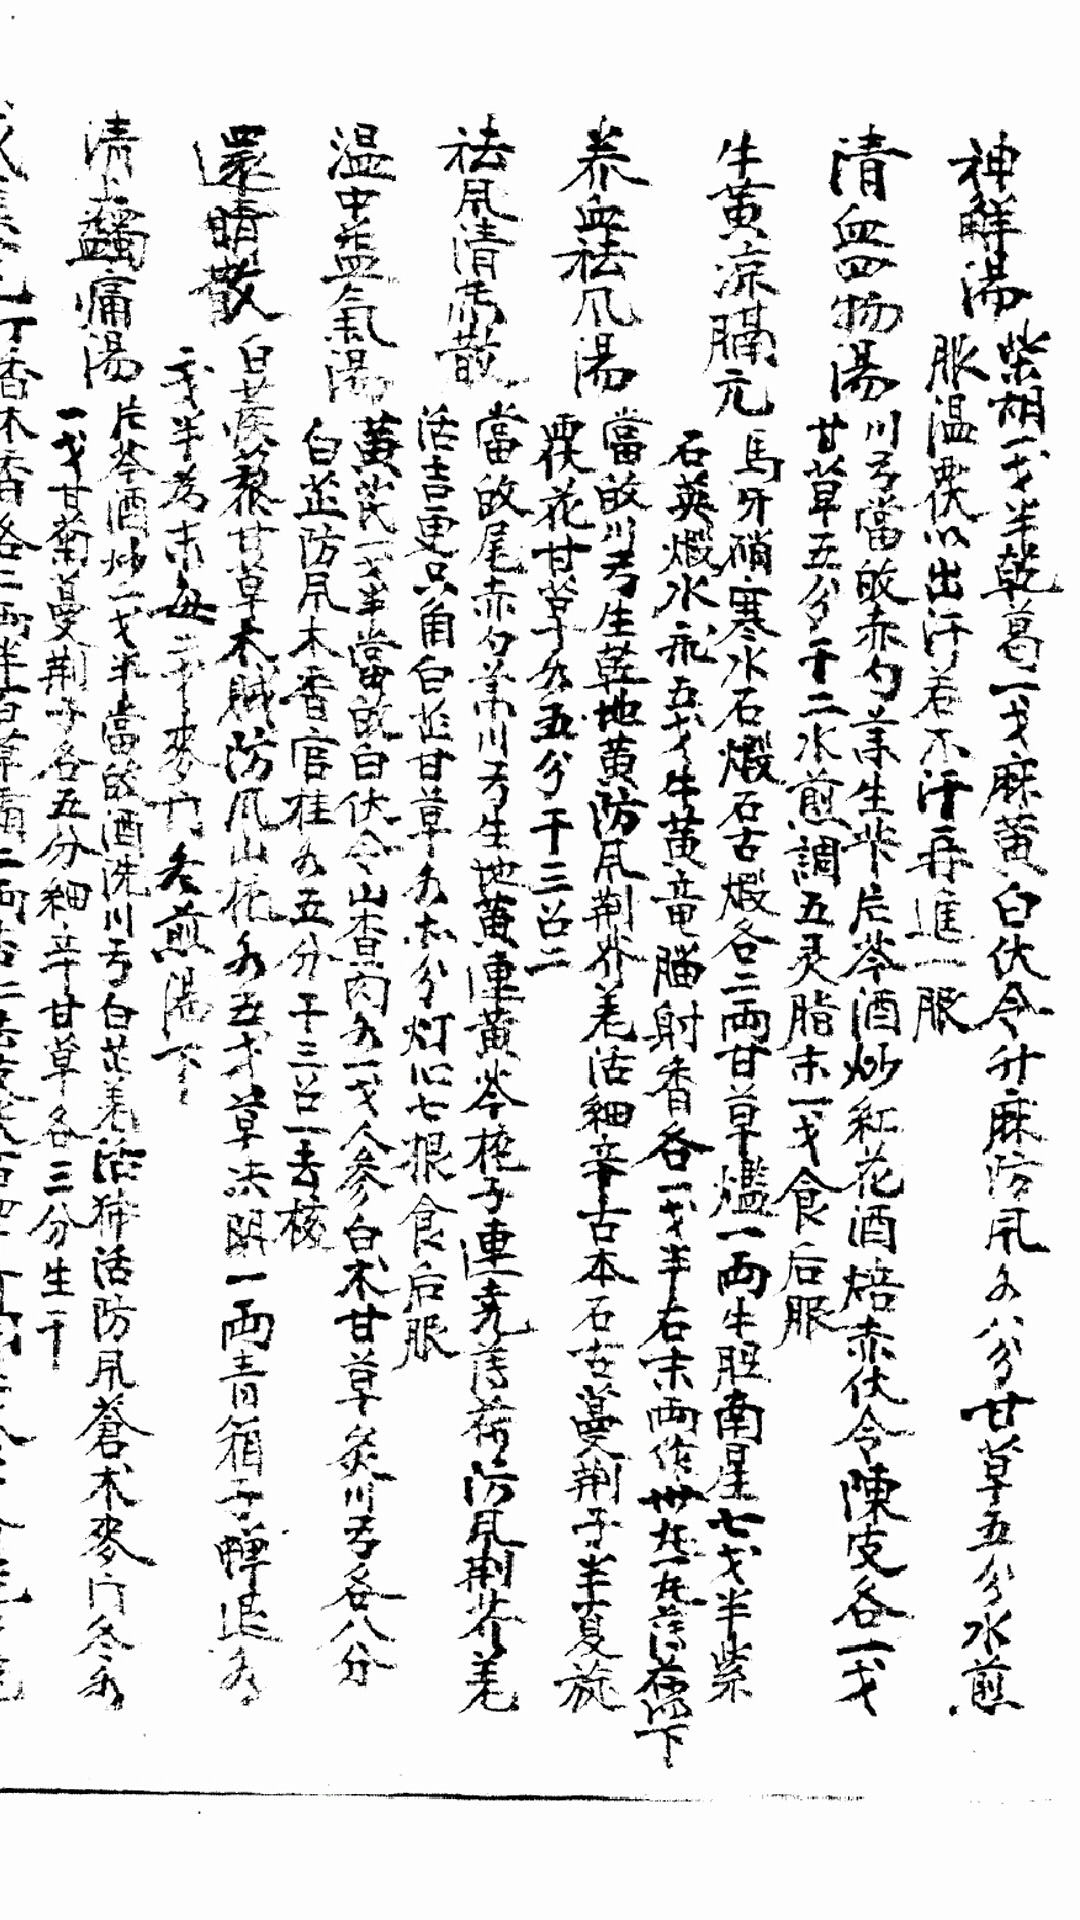 神解湯 柴胡一戈半乾葛一戈麻黄白伏令升麻防風各八分甘草五分水煎
服温覆以出汗若不汗再進一服
清血四物湯 川芎當敀赤勺薬生芐片芩酒炒紅花酒焙赤伏令陳皮各一戈
甘草五分干二水煎調五灵脂末一戈食后服
牛黄凉膈元 馬牙硝寒水石煅石古煅各二兩甘草爁一兩牛胆南星七戈半紫
石英煅水飛五戈牛黄竜腦射香各一戈半右末兩作卅丸一丸薄荷湯下
养血祛風湯 當敀川芎生乾地黄防風荆芥羌活細辛古本石古蔓荆子半夏旋
覆花甘草各五分干三召二
祛風清 散 當敀尾赤勺薬川芎生地黄連黄芩梔子連壳薄荷防風荆芥羌
活吉更只角白芷甘草各 分灯心七根食后服
温中益氣湯 黄芪一戈半當敀白伏令山査肉各一戈人参白术甘草炙川芎各八分
白芷防風木香官桂各五分干三召一去核
還睛散 白蒺藜甘草木賊防風山梔各五戈草決明一兩青箱子蟬退各
二戈半為末每二戈麥門冬煎湯下
清上蠲痛湯 片芩酒炒一戈半當敀酒洗川芎白芷羌活独活防風蒼术麥门冬各
一戈甘菊蔓荆子各五分細辛甘草各三分生干